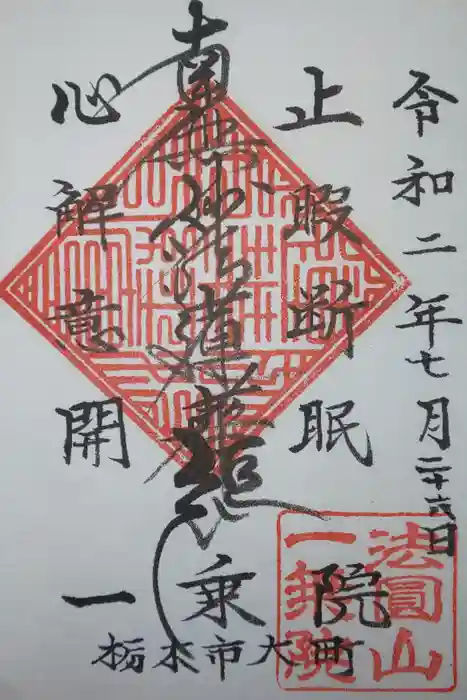 令和二年七月二十六日
止暇断眠
南無妙法蓮華経
心解意開
一乗院
栃木市大町
法圓山
一乘院